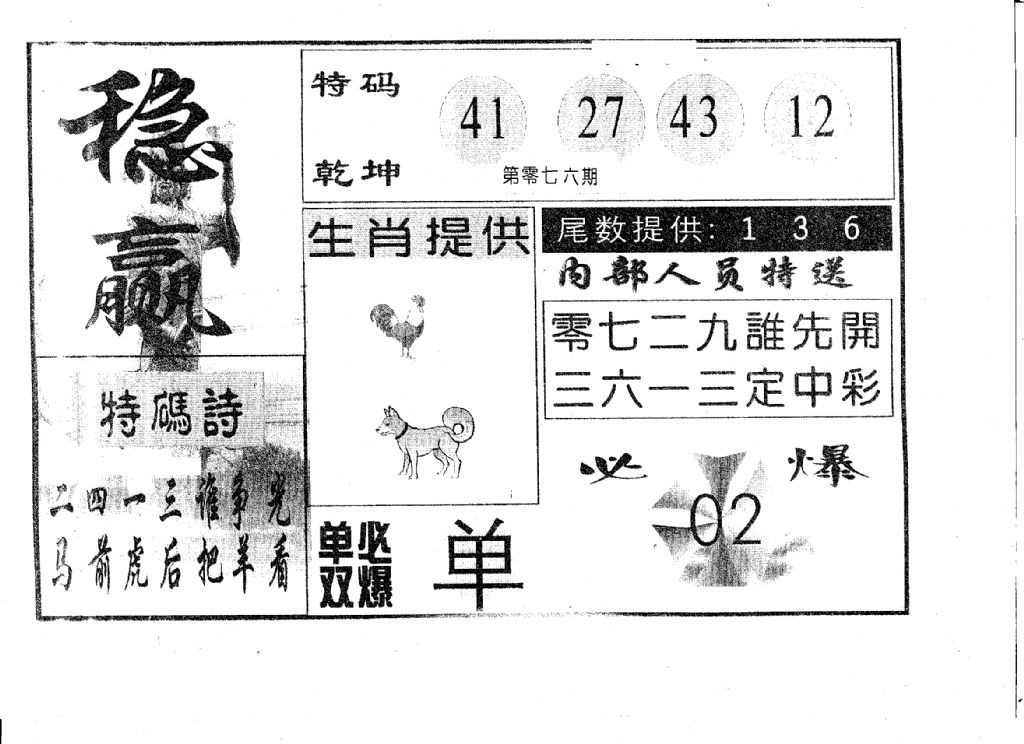 稳赢
特码
乾坤
41 27 43 12
第零七六期
生肖提供
尾数提供: 1 3 6
内部人员特送
零七二九誰先開
三六一三定中彩
特碼詩
二四一三谁争光
马前虎后把羊看
单双
必爆
单
必爆
02